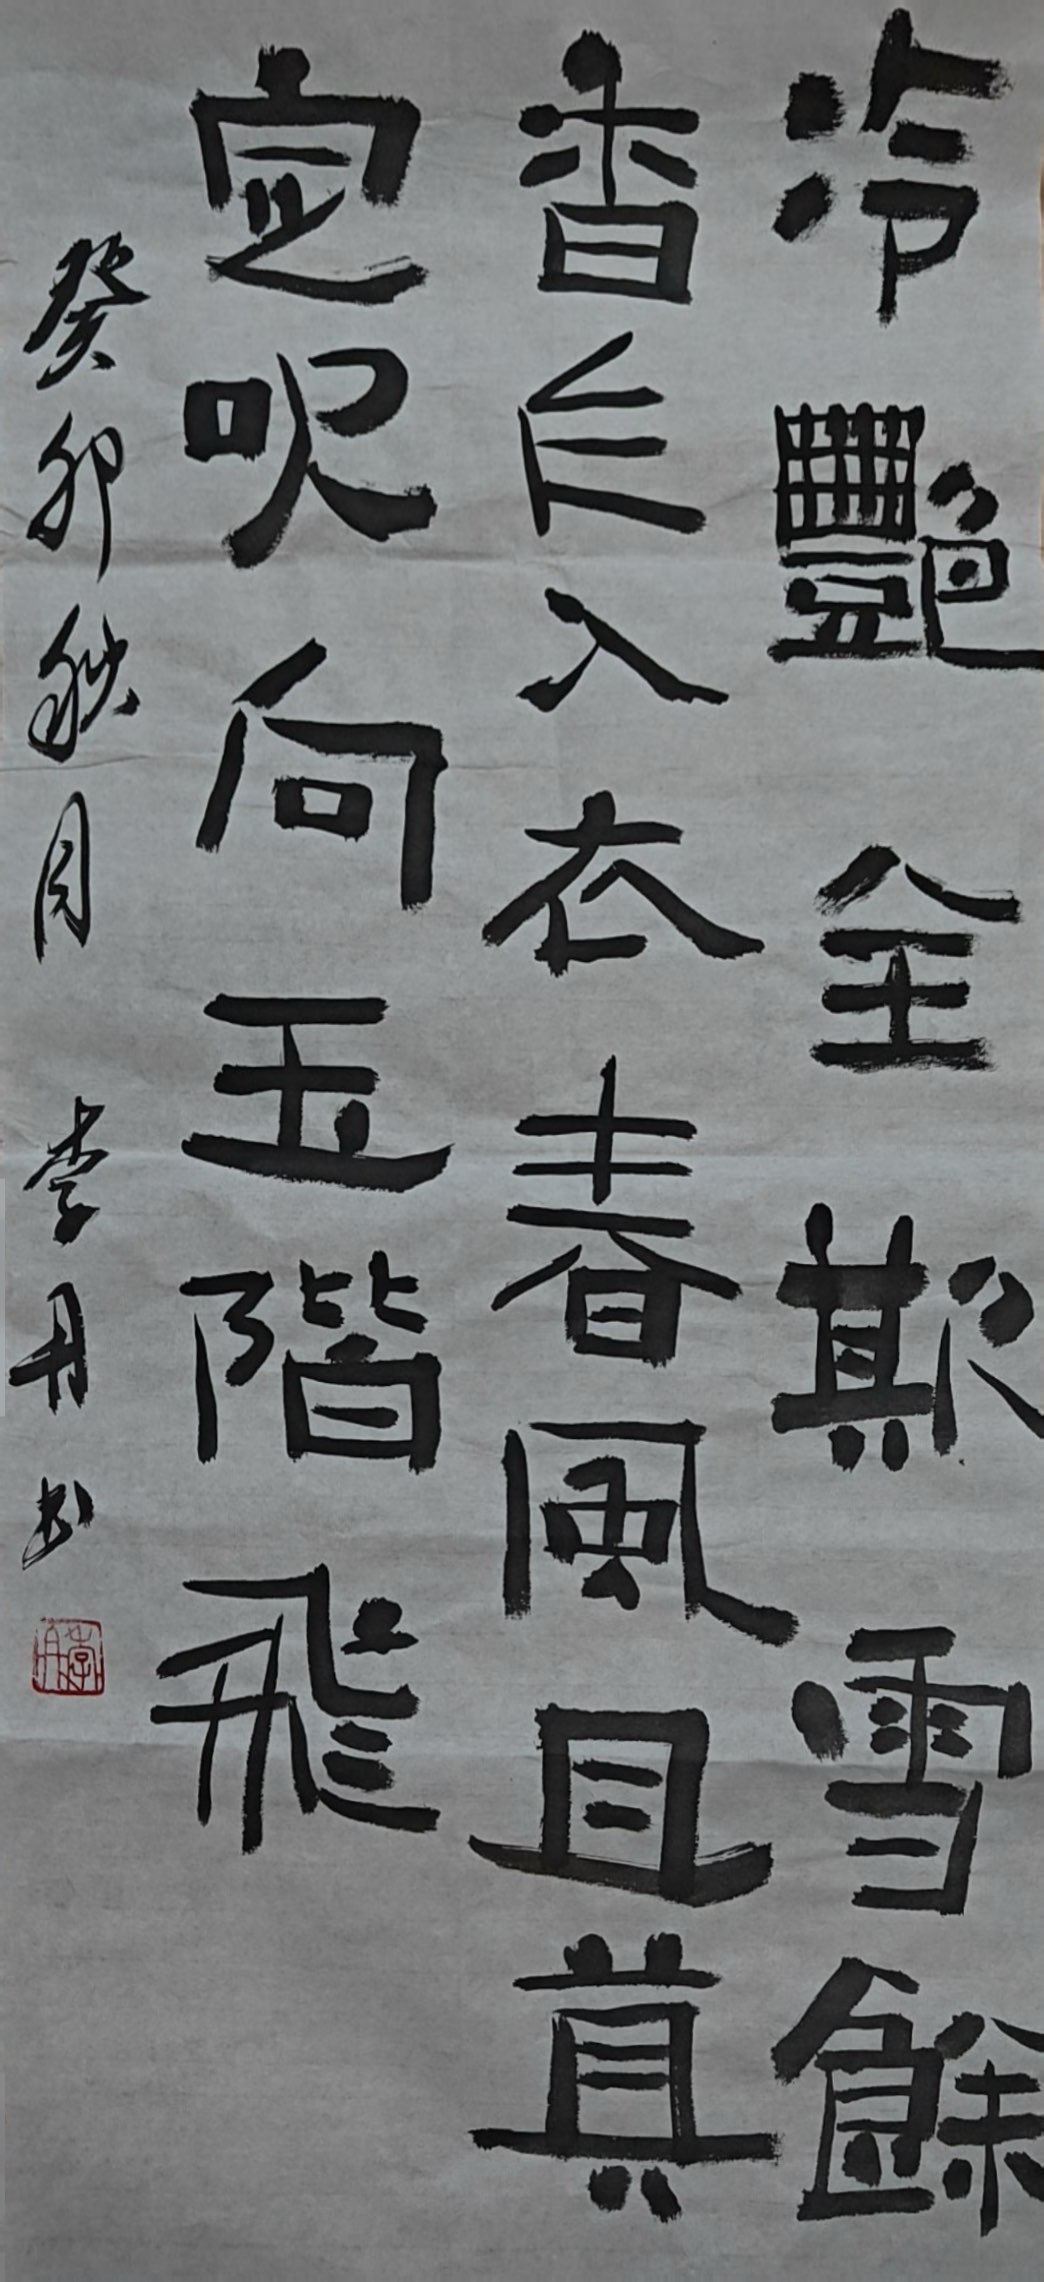 冷艷全欺雪餘
香乍入衣春風且莫
定吹向玉階飛
癸卯秋月 李丹书
李丹